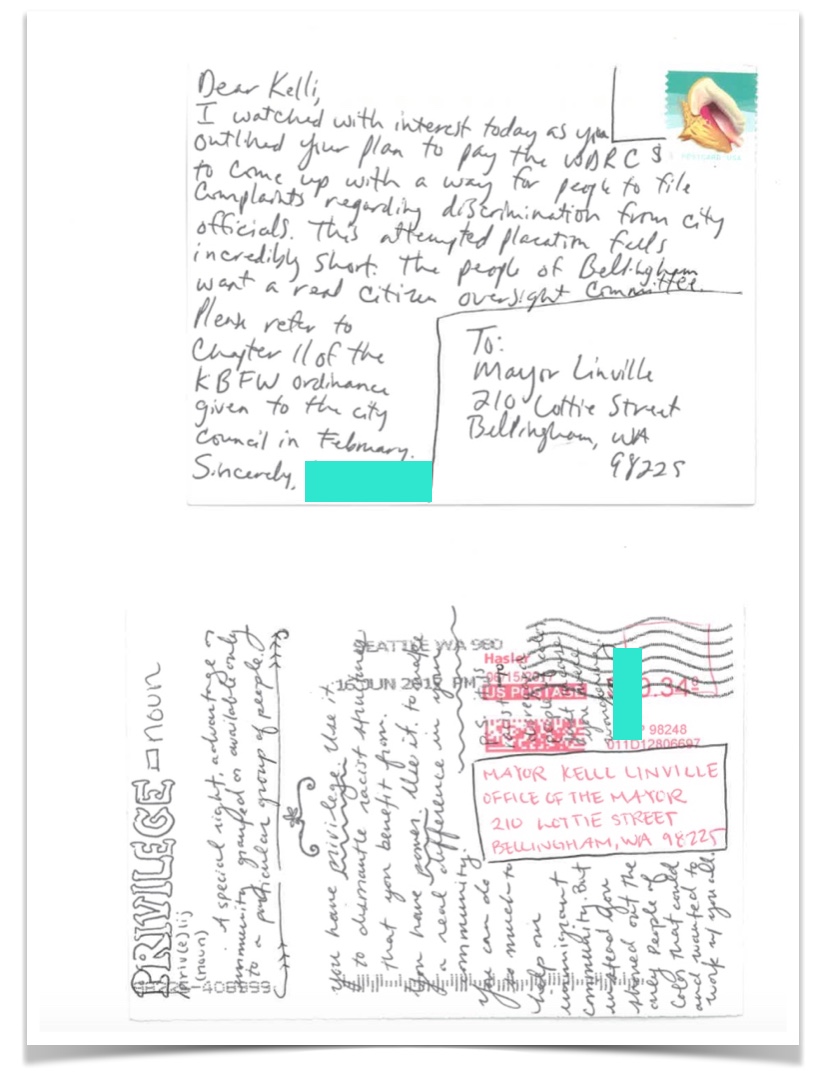 Dear Kelli,
I watched with interest today as you
outlined your plan to pay the WDRC $
to come up with a way for people to file
Complaints regarding discrimination from city
officials. This attempted placation falls
incredibly short. The people of Bellingham
want a real citizen oversight Committee.
Please refer to
Chapter 11 of the
KBFW ordinance
given to the city
Council in February.
Sincerely,
To:
Mayor Linville
210 Lottie Street
Bellingham, WA
98225
POSTCARD USA
PRIVILEGE - noun
priv(e)lij
(noun)
A special right, advantage or
immunity granted or available only
to a particular group of people.
you have privilege. Use it
to dismantle racist structures
that you benefit from.
You have power. Use it to make
a real difference in your
community.
you can do
so much to
help our
immigrant
community. But
instead you
shoved out the
only People of
Color that could
and wanted to
work w/ you all.
P.S.
SEATTLE WA 980
16 JUN PM
Hasler
06/15/2017
US POSTAGE
0.34
98248
011D12806697
MAYOR KELLI LINVILLE
OFFICE OF THE MAYOR
210 LOTTIE STREET
BELLINGHAM, WA 98225